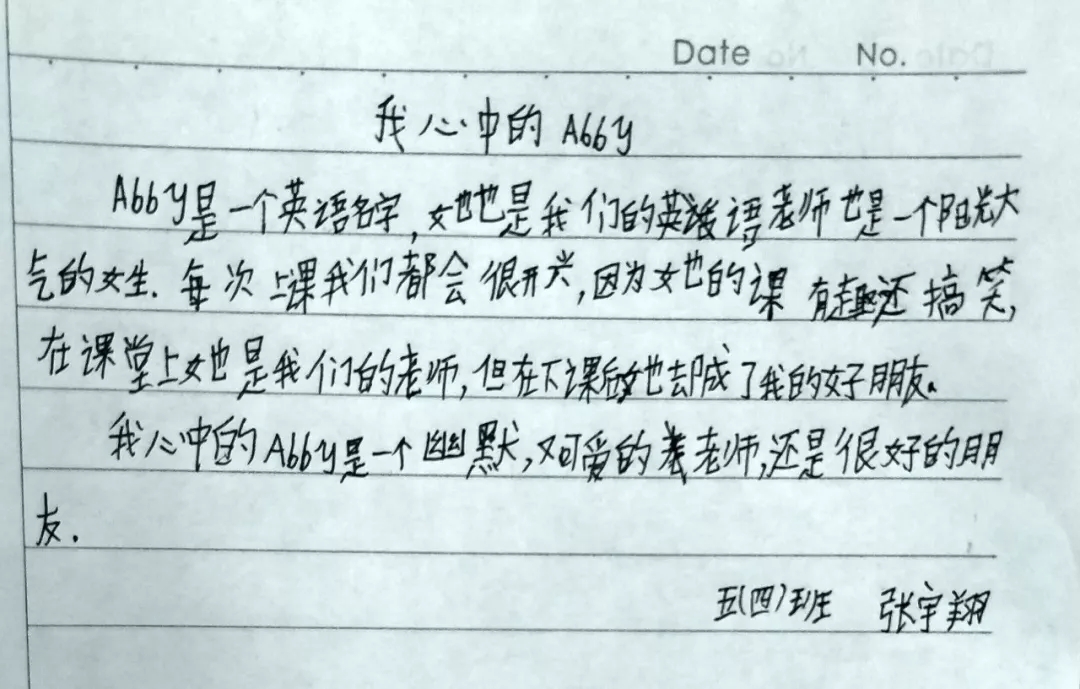 Date No.
我心中的Abby
Abby是一个英语名字,她也是我们的英语老师也是一个阳光大
气的女生.每次上课我们都会很开兴,因为她的课有趣还搞笑,
在课堂上她是我们的老师,但在下课后她却成了我的好朋友。
我心中的Abby是一个幽默,又可爱的老师,还是很好的朋
友.
五(四)班 张宇翔